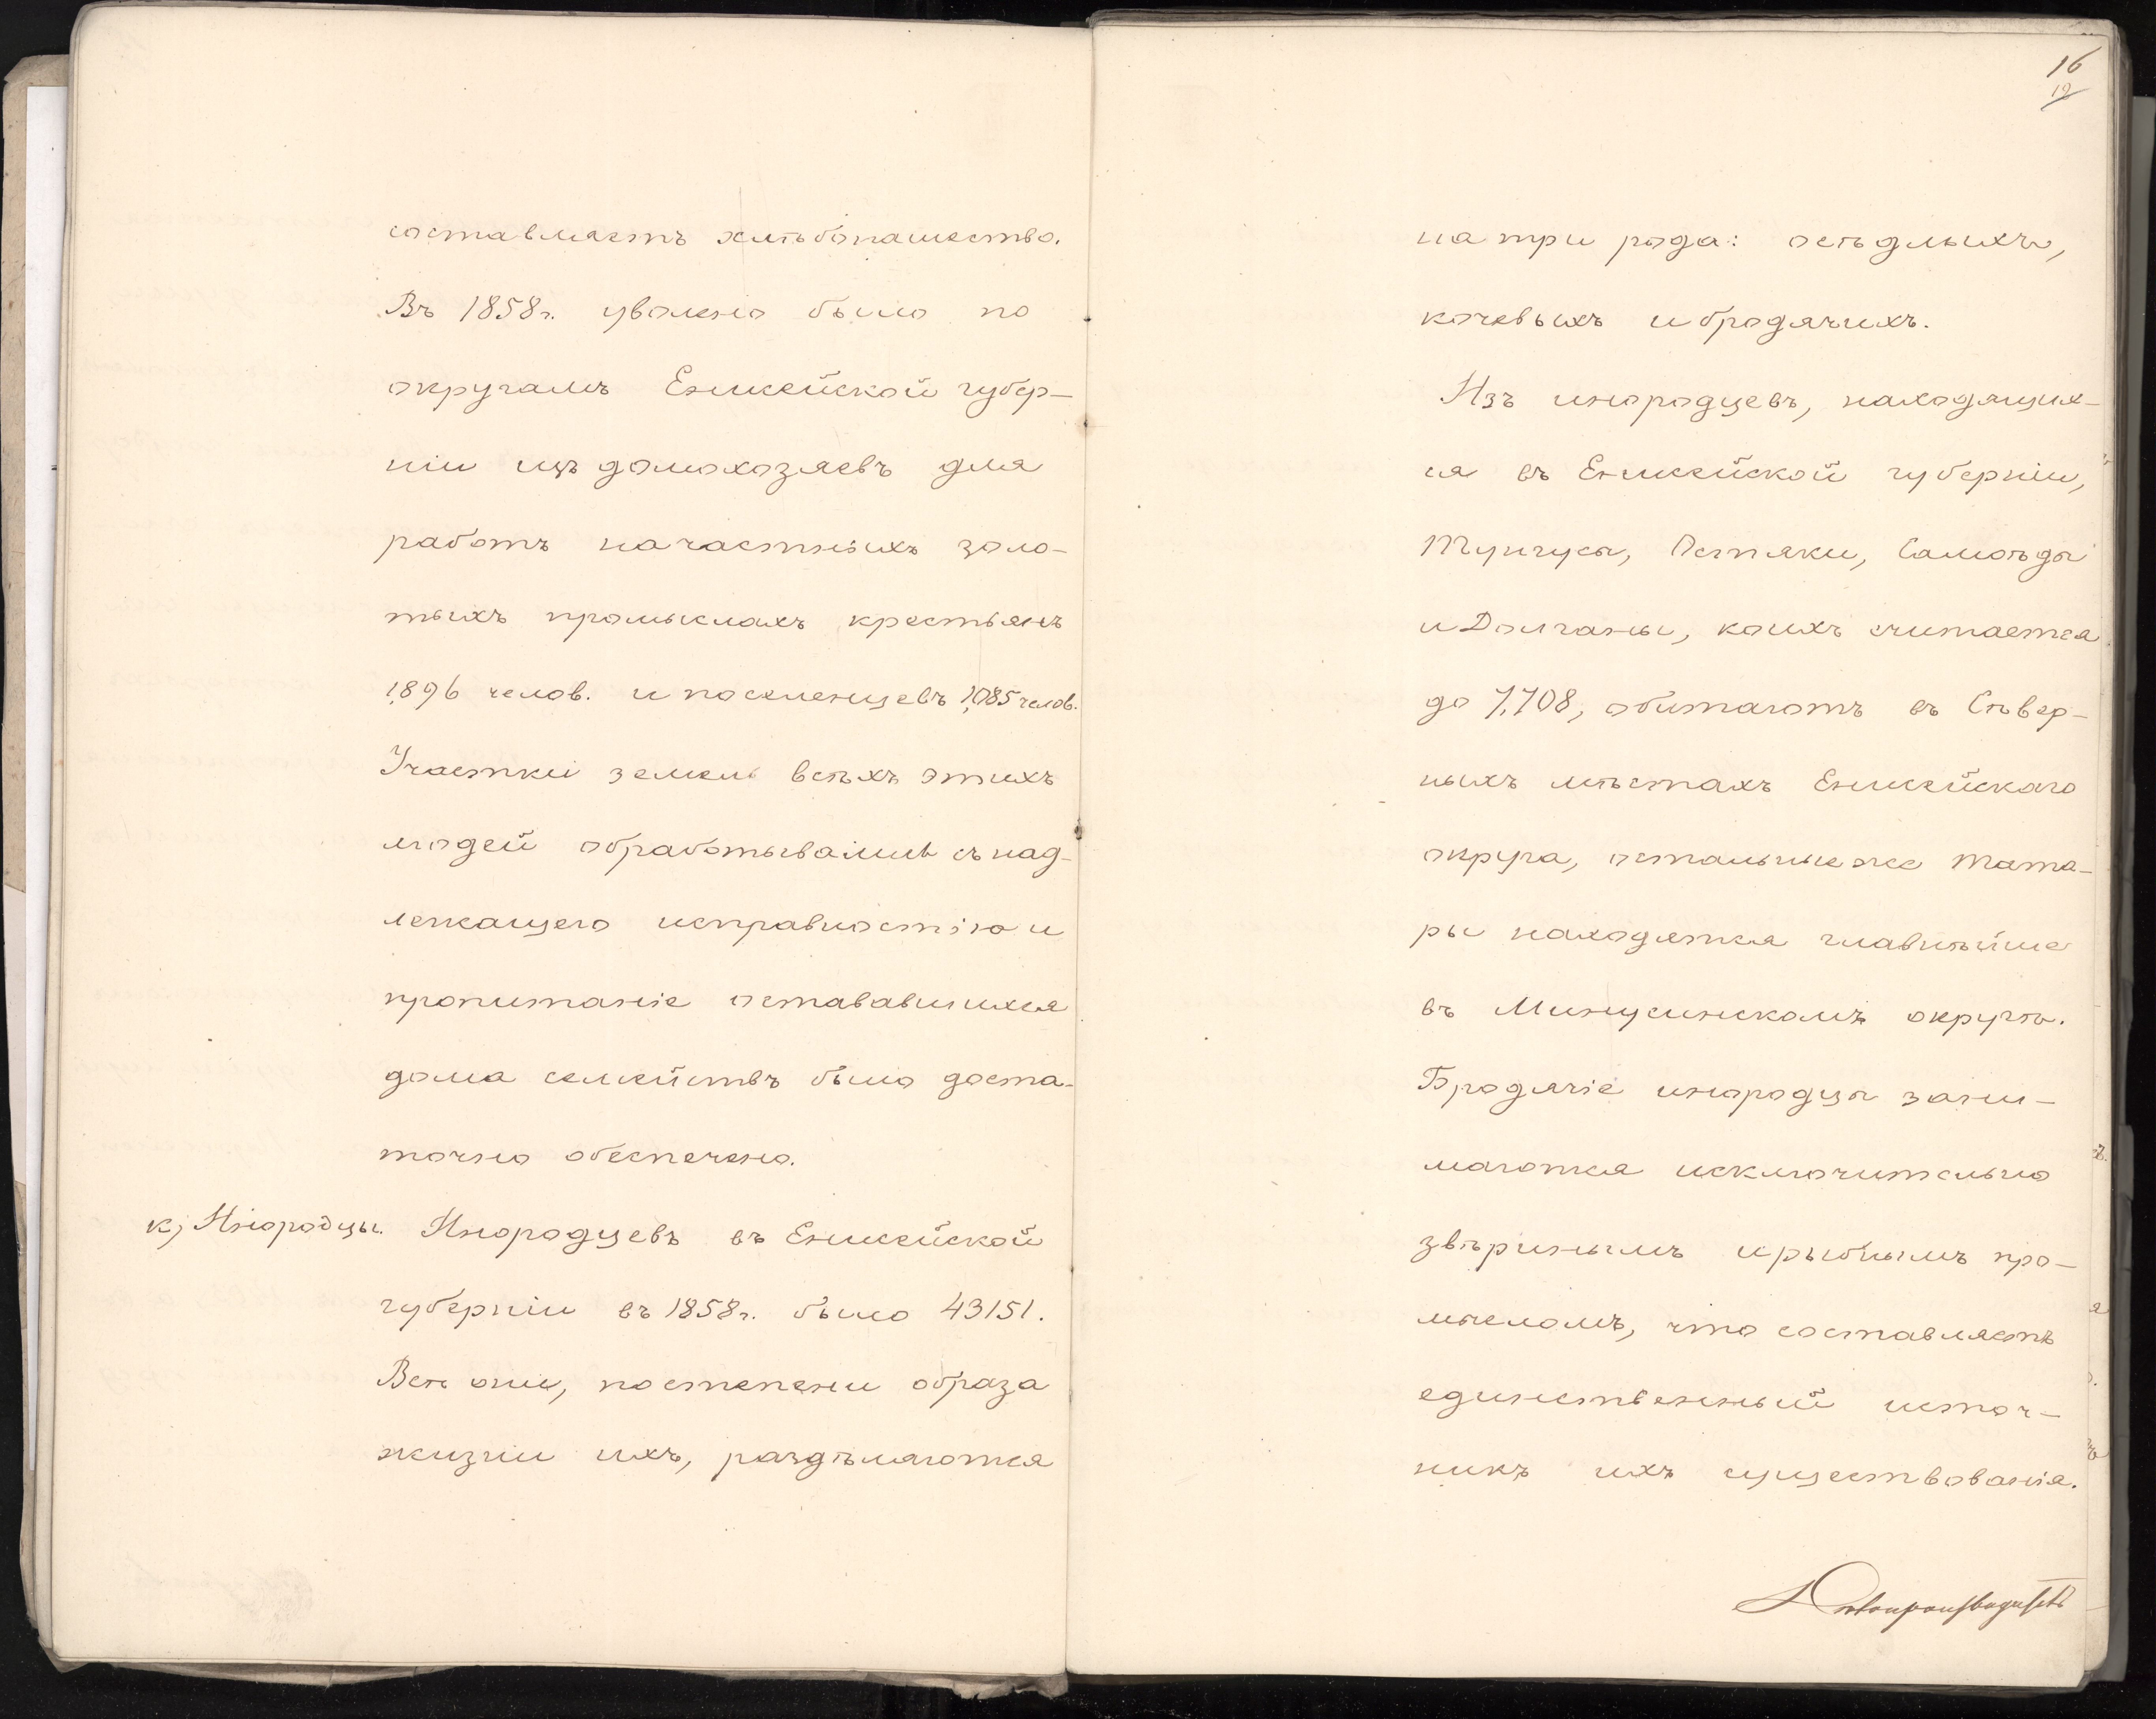 составляетъ хлѣбопашество.
Въ 1858 г. уволено было по
округамъ Енисейской губер-
ніи изъ домохозяевъ для
работъ на частныхъ золо-
тыхъ промыслахъ крестьянъ
1,896 челов. и поселенцевъ 1,085 челов.
Участки земель всѣхъ этихъ
людей обработывались съ над-
лежащего исправностію и
пропитаніе остававшихся
дома семействъ было доста-
точно обеспечено.
к) Инородцы. Инородцевъ въ Енисейской
губерніи въ 1858 г. было 43151.
Всѣ они, по степени образа
жизни ихъ, раздѣляются
16
19
на три рода: осѣдлыхъ,
кочевыхъ и бродячихъ.
Изъ инородцевъ, находящих-
ся въ Енисейской губерніи,
Тунгусы, Остяки, Самоѣды
и Долганы, коихъ считается
до 7,708, обитаютъ въ Сѣвер-
ныхъ мѣстахъ Енисейскаго
округа, остальные же Тата-
ры находятся главнѣйше
въ Минусинскомъ округѣ.
Бродячіе инородцы зани-
маются исключительно
звѣринымъ и рыбнымъ про-
мысломъ, что составляетъ
единственный источ-
никъ ихъ существованія.
Дѣлопроизводитель